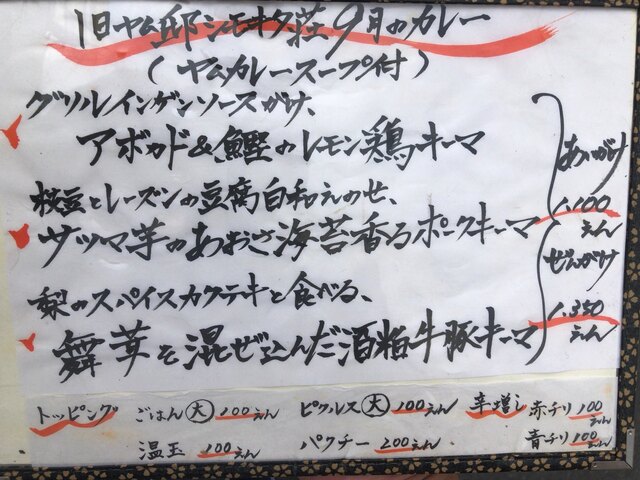 旧ヤム邸シモキタ荘9月のカレー
(ヤムカレースープ付)
グリルインゲンソースがけ、
アボカド&鰹のレモン鶏キーマ
枝豆とレーズンの豆腐白和えのせ、
サツマ芋のあおさ海苔香るポークキーマ
梨のスパイスカクテキと食べる、
舞茸を混ぜ込んだ酒粕牛豚キーマ
あいがけ
1.100えん
ぜんがけ
1.350えん
トッピング ごはん大 100えん ピクルス大 100えん 辛増し 赤チリ 100えん
温玉 100えん パクチー 200えん 青チリ 100えん